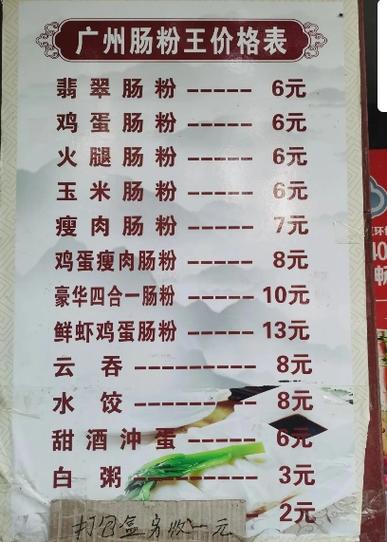 广州肠粉王价格表
翡翠肠粉-----6元
鸡蛋肠粉-----6元
火腿肠粉-----6元
玉米肠粉-----6元
瘦肉肠粉-----7元
鸡蛋瘦肉肠粉-----8元
豪华四合一肠粉-----10元
鲜虾鸡蛋肠粉-----13元
云吞---------8元
水饺---------8元
甜酒沖蛋------6元
白粥---------3元
2元
打包盒另收一元